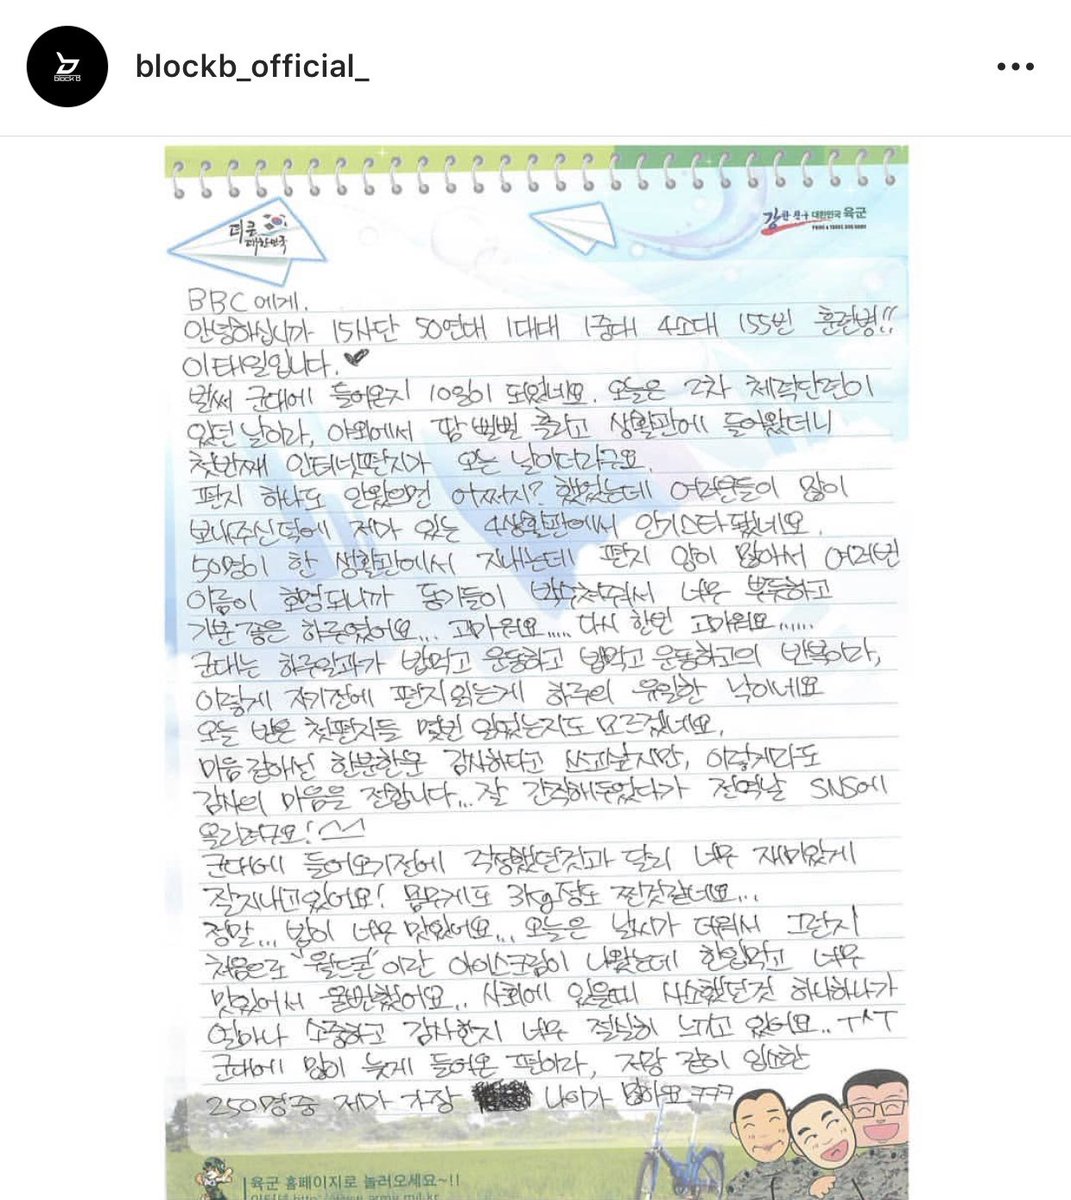 blockb_official_
block B
대한민국
강한 친구 대한민국 육군
BBC에게.
안녕하십니까 15사단 50연대 1대대 1중대 4소대 155번 훈련병!!
이태일입니다. ♥
벌써 군대에 들어온지 10일이 되었네요. 오늘은 2차 체력단련이
있던 날이라, 야외에서 땀 뻘뻘 흘리고 생활관에 들어왔더니
첫번째 인터넷편지가 오는 날이더라구요.
편지 하나도 안왔으면 어쩌지? 했었는데 여러분들이 많이
보내주신덕에 제가 있는 4생활관에서 인기스타됐네요.
50명이 한 생활관에서 지내는데 편지 양이 많아서 여러번
이름이 호명되니까 동기들이 박수쳐줘서 너무 뿌듯하고
기분 좋은 하루였어요... 고마워요..... 다시 한번 고마워요......
군대는 하루일과가 밥먹고 운동하고 밥먹고 운동하고의 반복이라,
이렇게 자기전에 편지읽는게 하루의 유일한 낙이네요
오늘 받은 첫편지들 몇번 읽었는지도 모르겠네요.
마음같아선 한분한분 감사하다고 쓰고싶지만, 이렇게라도
감사의 마음을 전합니다... 잘 간직해두었다가 전역날 SNS에
올리려구요! ^^
군대에 들어오기전에 걱정했던것과 달리 너무 재미있게
잘지내고있어요! 몸무게도 3kg정도 찐것같네요...
정말... 밥이 너무 맛있어요... 오늘은 날씨가 더워서 그런지
처음으로 "월드콘"이란 아이스크림이 나왔는데 한입먹고 너무
맛있어서 울뻔했어요... 사회에 있을때 사소했던것 하나하나가
얼마나 소중하고 감사한지 너무 절실히 느끼고 있어요.. ㅜ^ㅜ
군대에 많이 늦게 들어온 편이라, 저랑 같이 입소한
250명중 제가 가장 나이가 많아요 ㅋㅋㅋ
육군 홈페이지로 놀러오세요~!!
인터넷 http://www.army.mil.kr